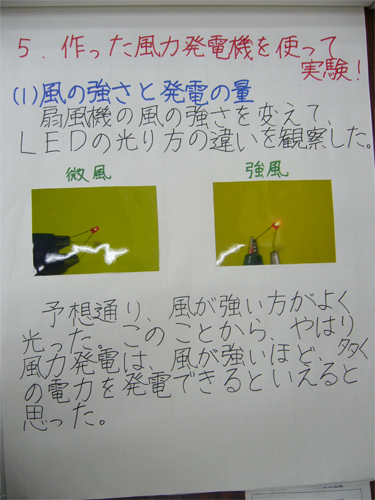 ５．作った風力発電機を使って
実験！
(1)風の強さと発電の量
扇風機の風の強さを変えて、
ＬＥＤの光り方の違いを観察した。
微風
強風
予想通り、風が強い方がよく
光った。このことから、やはり
風力発電は、風が強いほど、多く
の電力を発電できるといえると
思った。